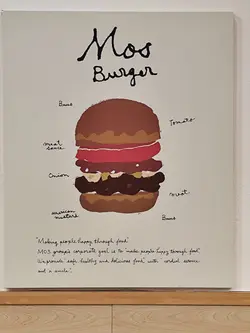 Mos
Burger
Buns
Tomato
meat
sauce
Onion
meat
american
mustard
Buns
"Making people happy through food"
MOS group's corporate goal is to make people happy through food.
We provide safe, healthy and delicious food with cordial service
and a smile.